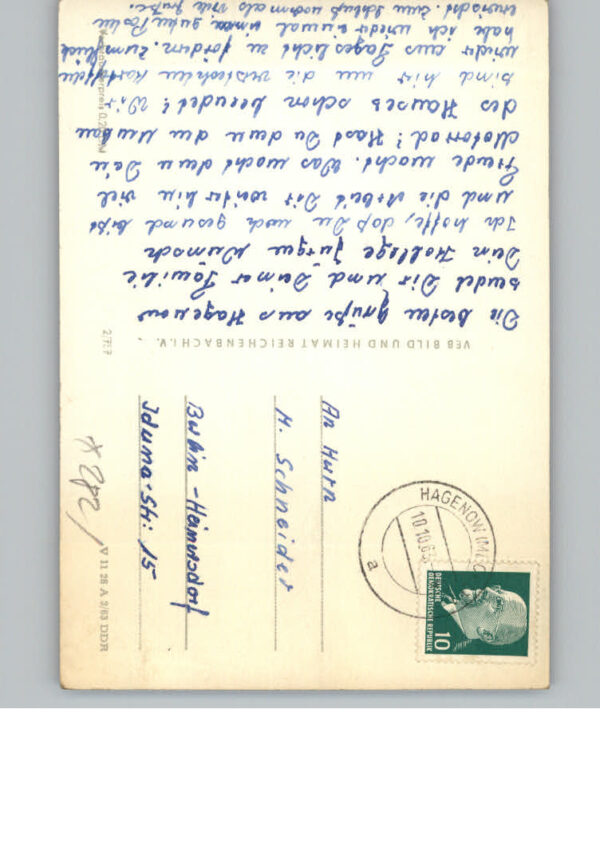 Die besten Grüße aus Hagenow
sendet Dir und Deiner Familie
Dein Kollege Jürgen Wünsch
Ich hoffe, daß Du noch gesund bist
und die Arbeit Dir weiterhin viel
Freude macht. Was macht denn Dein
Motorrad? Hast Du denn den Umbau
des Hauses schon beendet? Wir
sind hier um die versteckten Kartoffeln
wieder ans Tageslicht zu fördern. Zum Glück
habe ich wieder einmal guten
erwischt. Zum Schluß nochmals viele Grüße.
VEB BILD UND HEIMAT REICHENBACH I. V.
An Herrn
M. Schneider
Berlin - Heinersdorf
Iduna-Str. 15
HAGENOW (MECK
10.10.63
a
DEUTSCHE
DEMOKRATISCHE REPUBLIK
10
V 11 28 A 2/63 DDR